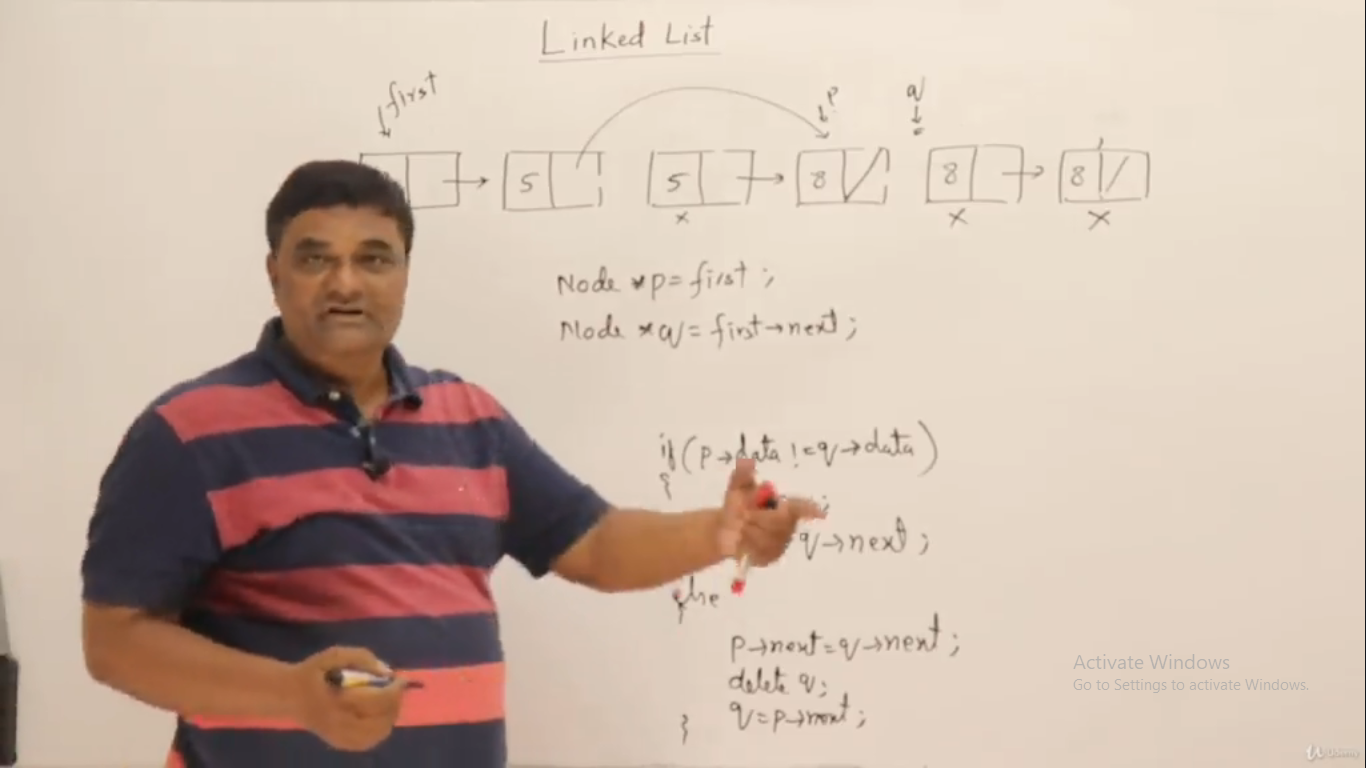 Linked List
first
p
q
5 5 8 8 8
x x x
Node *p=first;
Node *q=first→next;
if(p→data!=q→data)
{
;
q→next;
else
p→next=q→next;
delete q;
} q=p→next;
Activate Windows
Go to Settings to activate Windows.
Udemy